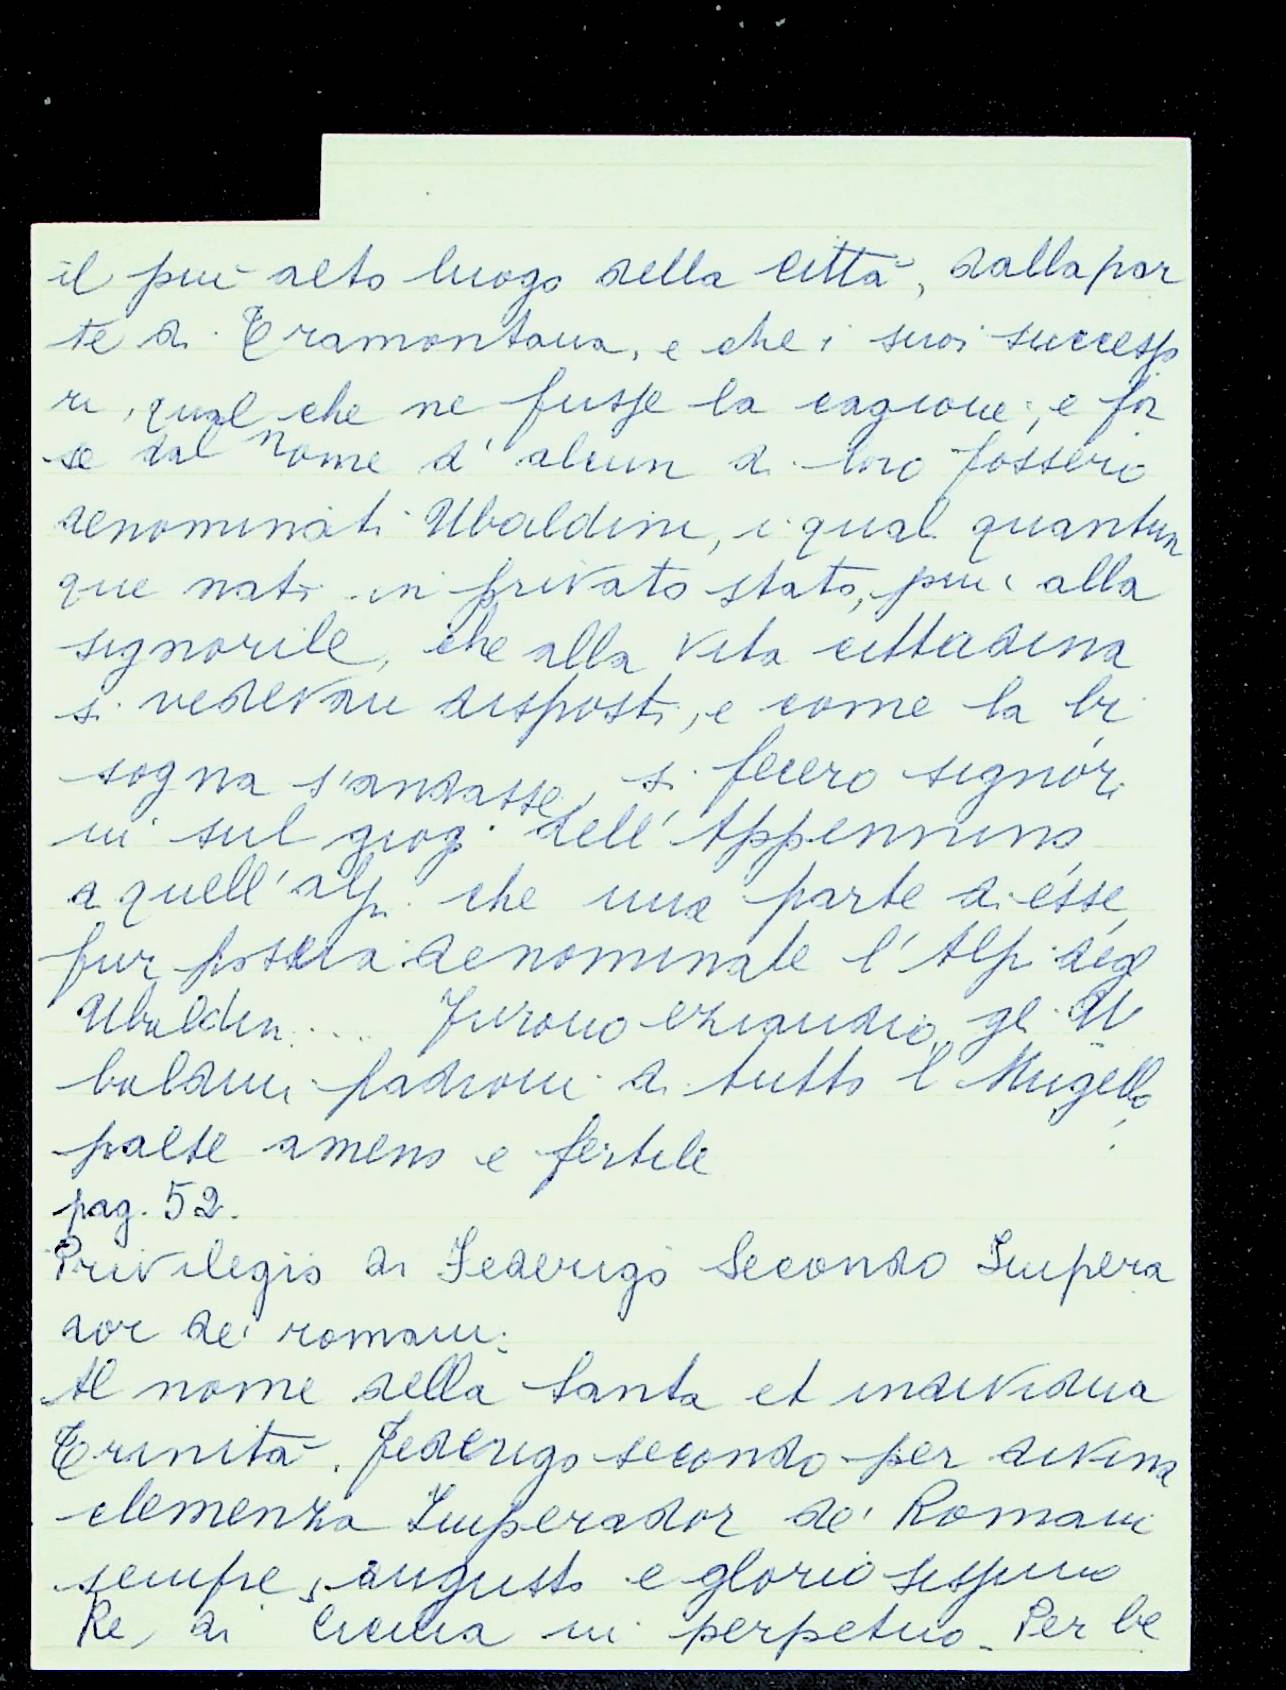 il piu alto luogo della città, dalla par
te di Tramontana, e che i suoi successo
ri, qual che ne fusse la cagione, e for
se dal nome d'alcun di loro fosserio
denominati Ubaldini, i quali quantun
que nati in privato stato, piu alla
signorile, che alla vita cittadina
si vedevan disposti, e come la bi
sogna s'andasse, si fecero signori
in sul giogi dell'Appennino
a quell'alpi che una parte di esse,
fur poscia denominate l'Alpi degl
Ubaldini.... Furono eziandio gl U
baldini padroni di tutto l Mugello,
paese ameno e fertile
pag. 52.
Privilegio di Federigo Secondo Impera
dor de' romani:
Al nome della Santa et individua
Trinità. Federigo secondo per divina
clemenza Imperador de' Romani
sempre, augusto e gloriosissimo
Re, di Cicilia in perpetuo. Per be